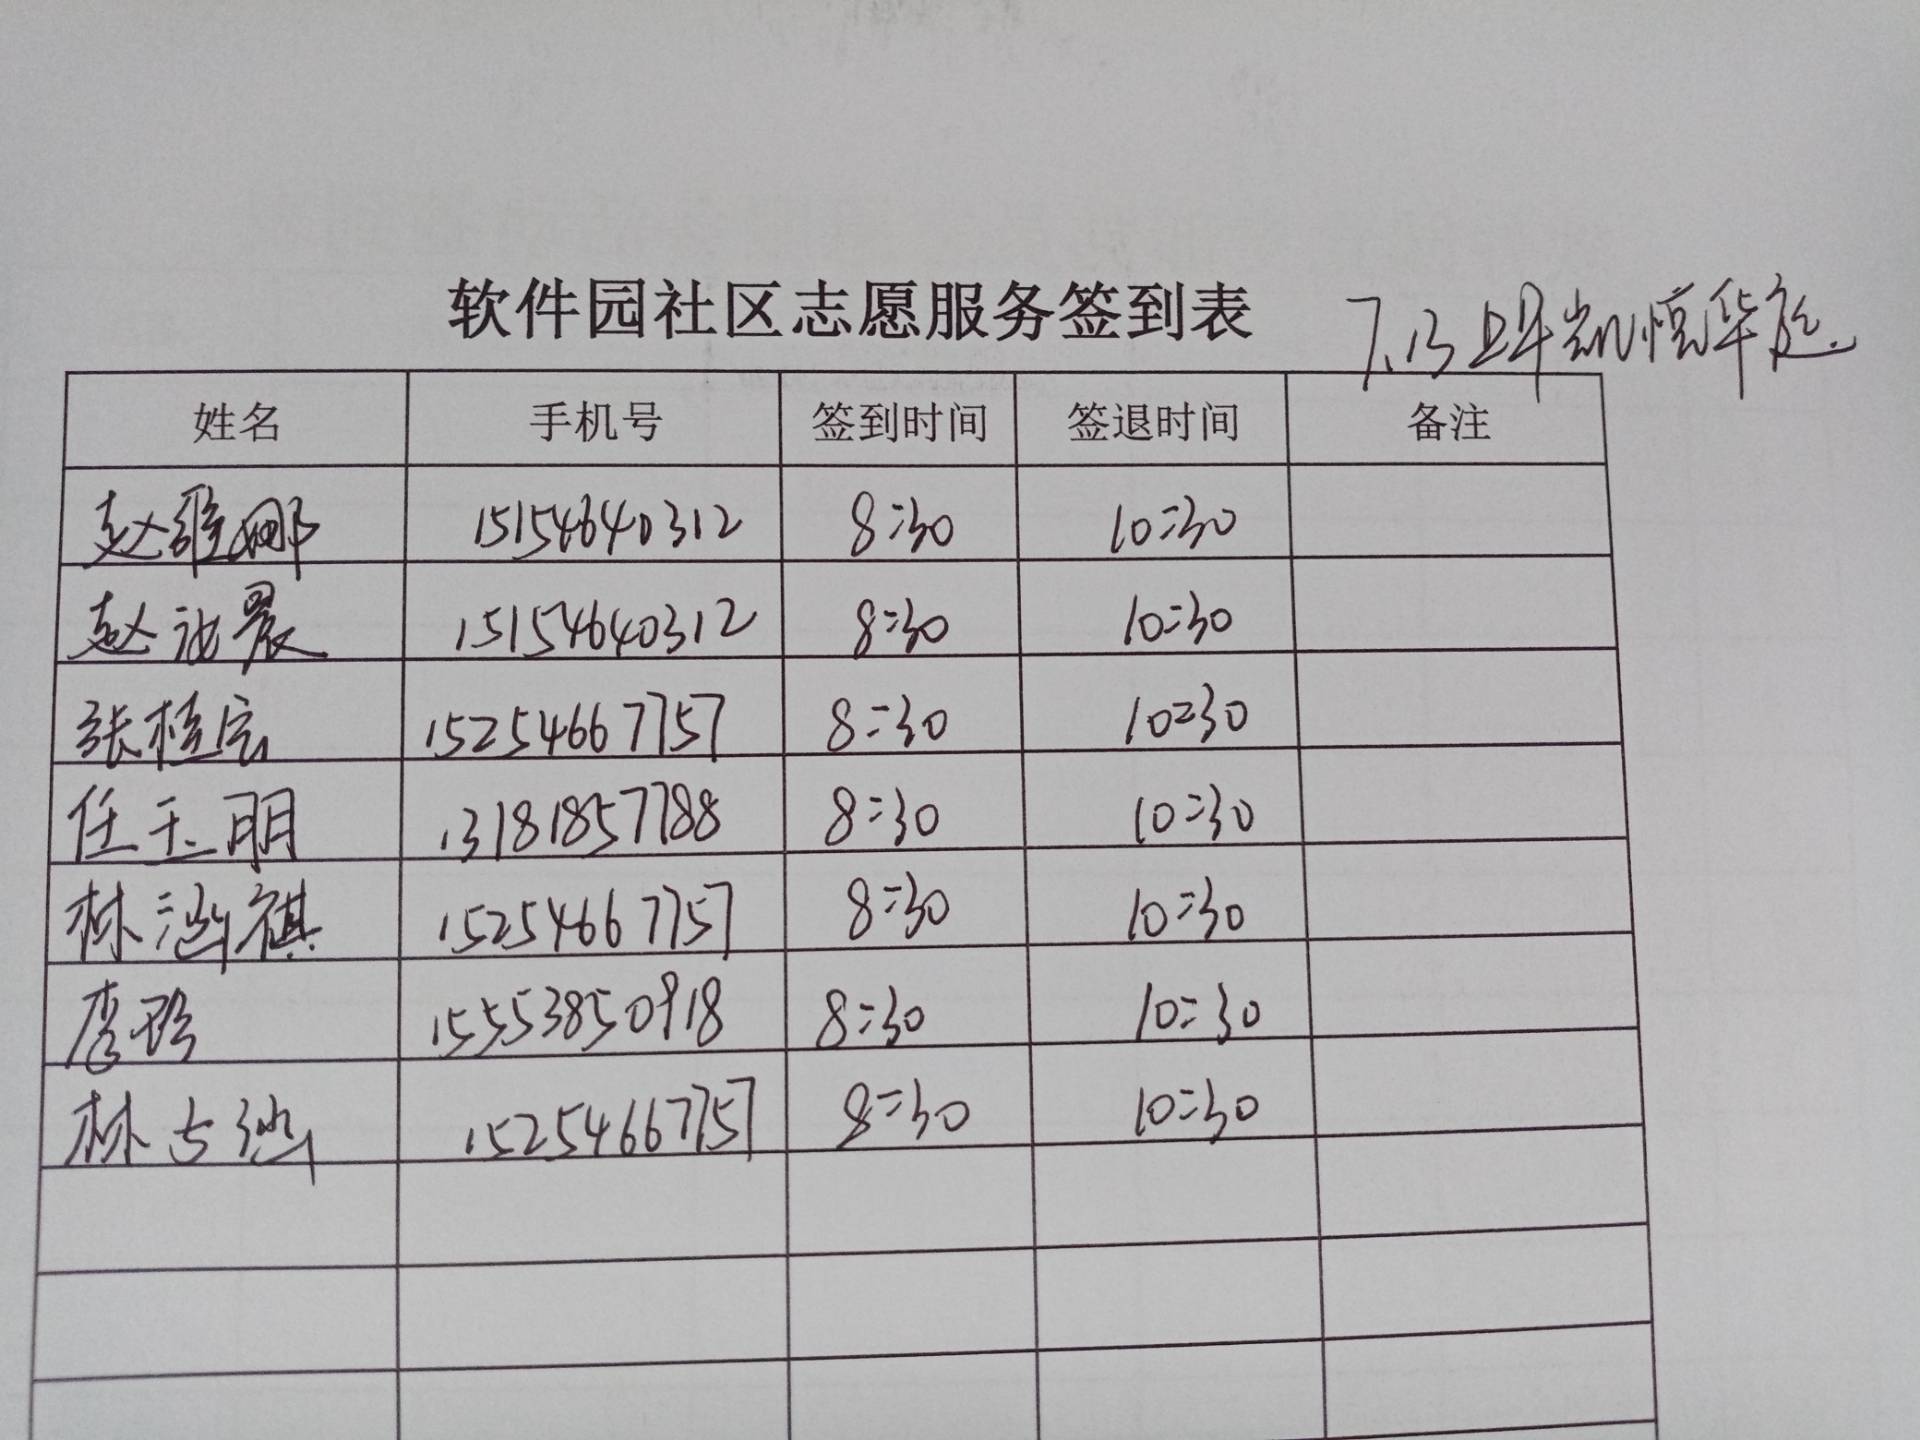 软件园社区志愿服务签到表 7.13上午凯悦华庭
姓名 手机号 签到时间 签退时间 备注
赵雅娜 15154640312 8:30 10:30
赵 晨 15154640312 8:30 10:30
张桂宏 15254667757 8:30 10:30
任玉明 13181857788 8:30 10:30
林涵祺 15254667757 8:30 10:30
李珍 15553850918 8:30 10:30
林 15254667757 8:30 10:30